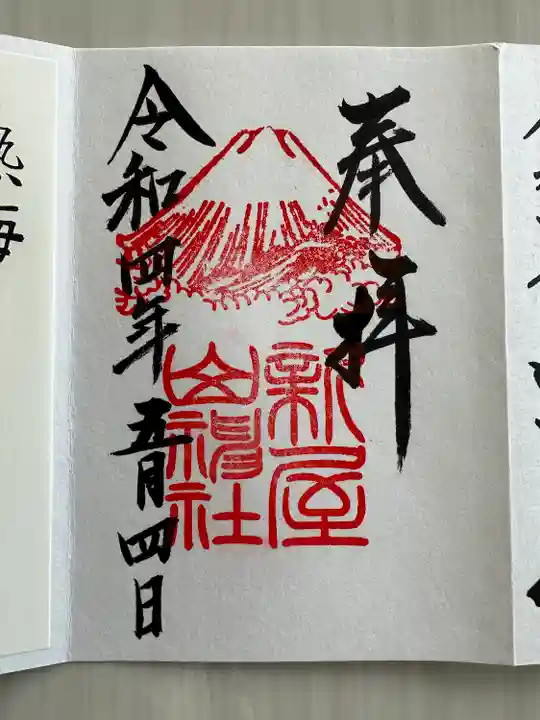 奉拝
新屋
山神社
令和四年五月四日
熱海